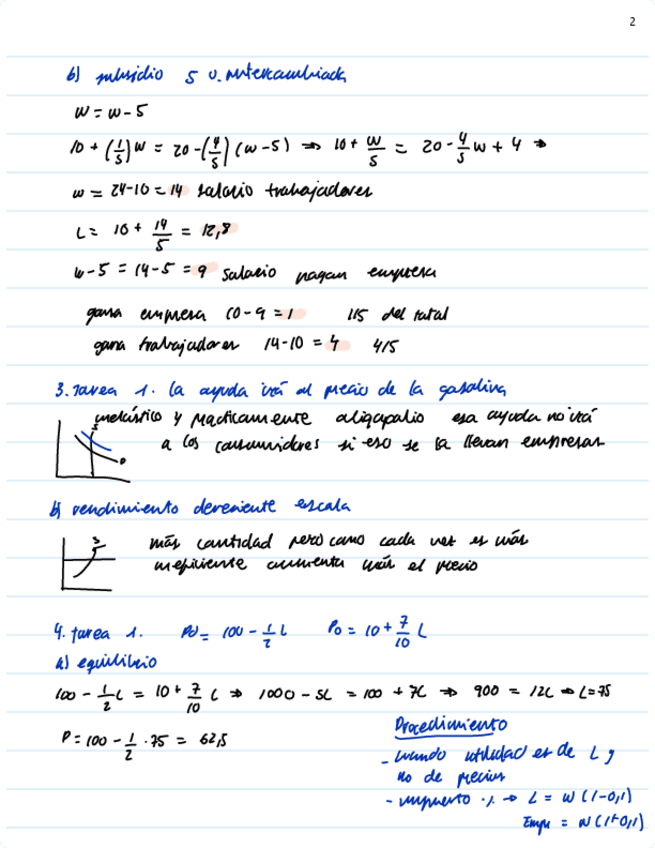 2
b) subsidio 5 u. intercambiada
W = W - 5
10 + (1/5)W = 20 - (4/5)(W - 5) ⇒ 10 + W/5 = 20 - 4/5 W + 4 ⇒
W = 24 - 10 = 14 salario trabajadores
L = 10 + 14/5 = 12,8
W - 5 = 14 - 5 = 9 salario pagan empresa
gana empresa 10 - 9 = 1 1/5 del total
gana trabajadores 14 - 10 = 4 4/5
3. tarea 1. la ayuda irá al precio de la gasolina
inelástico y practicamente oligopolio esa ayuda no irá
a los consumidores si eso se la llevan empresas
S
D
b) rendimiento decreciente escala
S
más cantidad pero como cada vez es más
ineficiente aumenta más el precio
4. tarea 1. Pd = 100 - 1/2 L Po = 10 + 7/10 L
a) equilibrio
100 - 1/2 L = 10 + 7/10 L ⇒ 1000 - 5L = 100 + 7L ⇒ 900 = 12L ⇒ L = 75
P = 100 - 1/2 · 75 = 62,5
Procedimiento
- cuando utilidad es de L y
no de precios
- impuesto ·/. → L = W(1-0,1)
Empr = W(1+0,1)